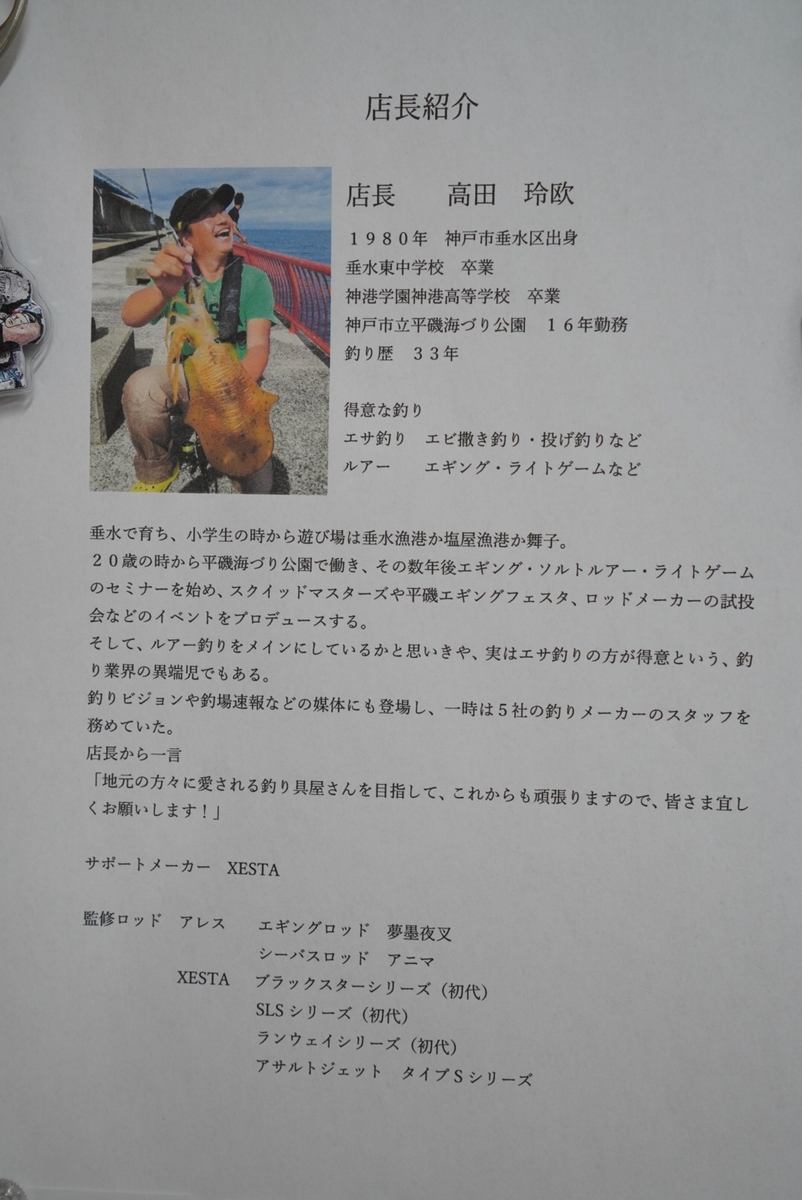 店長紹介
店長　　高田　玲欧
１９８０年　神戸市垂水区出身
垂水東中学校　卒業
神港学園神港高等学校　卒業
神戸市立平磯海づり公園　１６年勤務
釣り歴　３３年
得意な釣り
エサ釣り　エビ撒き釣り・投げ釣りなど
ルアー　　エギング・ライトゲームなど
垂水で育ち、小学生の時から遊び場は垂水漁港か塩屋漁港か舞子。
２０歳の時から平磯海づり公園で働き、その数年後エギング・ソルトルアー・ライトゲーム
のセミナーを始め、スクイッドマスターズや平磯エギングフェスタ、ロッドメーカーの試投
会などのイベントをプロデュースする。
そして、ルアー釣りをメインにしているかと思いきや、実はエサ釣りの方が得意という、釣
り業界の異端児でもある。
釣りビジョンや釣場速報などの媒体にも登場し、一時は５社の釣りメーカーのスタッフを
務めていた。
店長から一言
「地元の方々に愛される釣り具屋さんを目指して、これからも頑張りますので、皆さま宜し
くお願いします！」
サポートメーカー　XESTA
監修ロッド　アレス　　エギングロッド　夢墨夜叉
シーバスロッド　アニマ
XESTA　ブラックスターシリーズ（初代）
SLS シリーズ（初代）
ランウェイシリーズ（初代）
アサルトジェット　タイプ S シリーズ